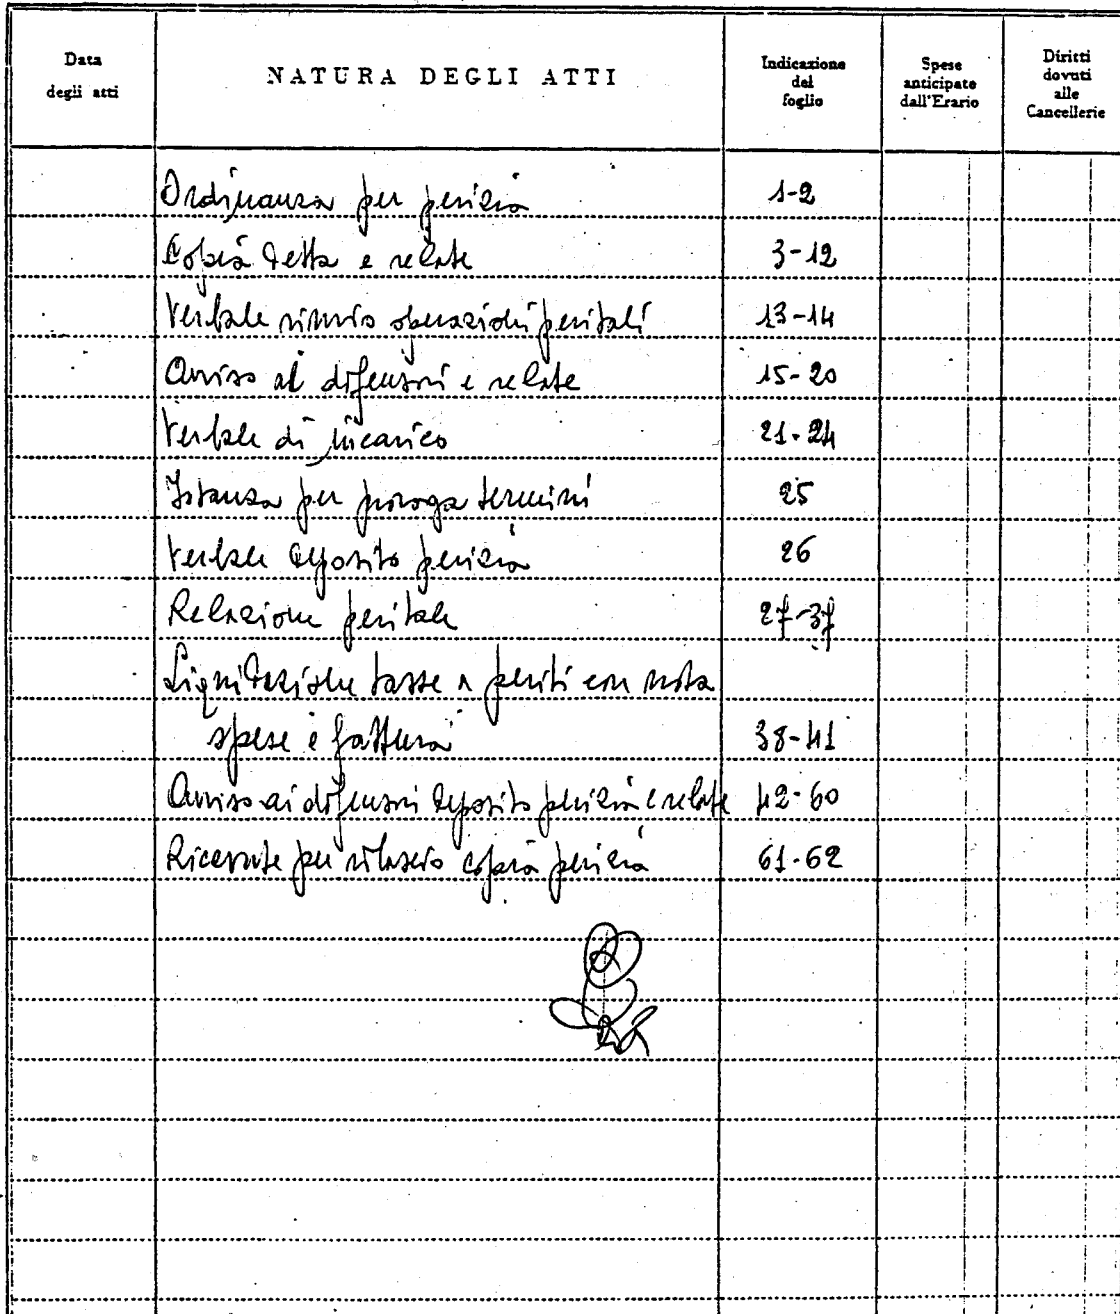 Data degli atti
NATURA DEGLI ATTI
Indicazione del foglio
Spese anticipate dall'Erario
Diritti dovuti alle Cancellerie
Ordinanza per perizia 1-2
Copia detta e relate 3-12
Verbale rinvio operazioni peritali 13-14
Avviso ai difensori e relate 15-20
Verbale di incarico 21-24
Istanza per proroga termini 25
Verbale deposito perizia 26
Relazione peritale 27-37
Liquidazione tasse a periti con nota
spese e fattura 38-41
Avviso ai difensori deposito perizia e relate 42-60
Ricevute per rilascio copia perizia 61-62